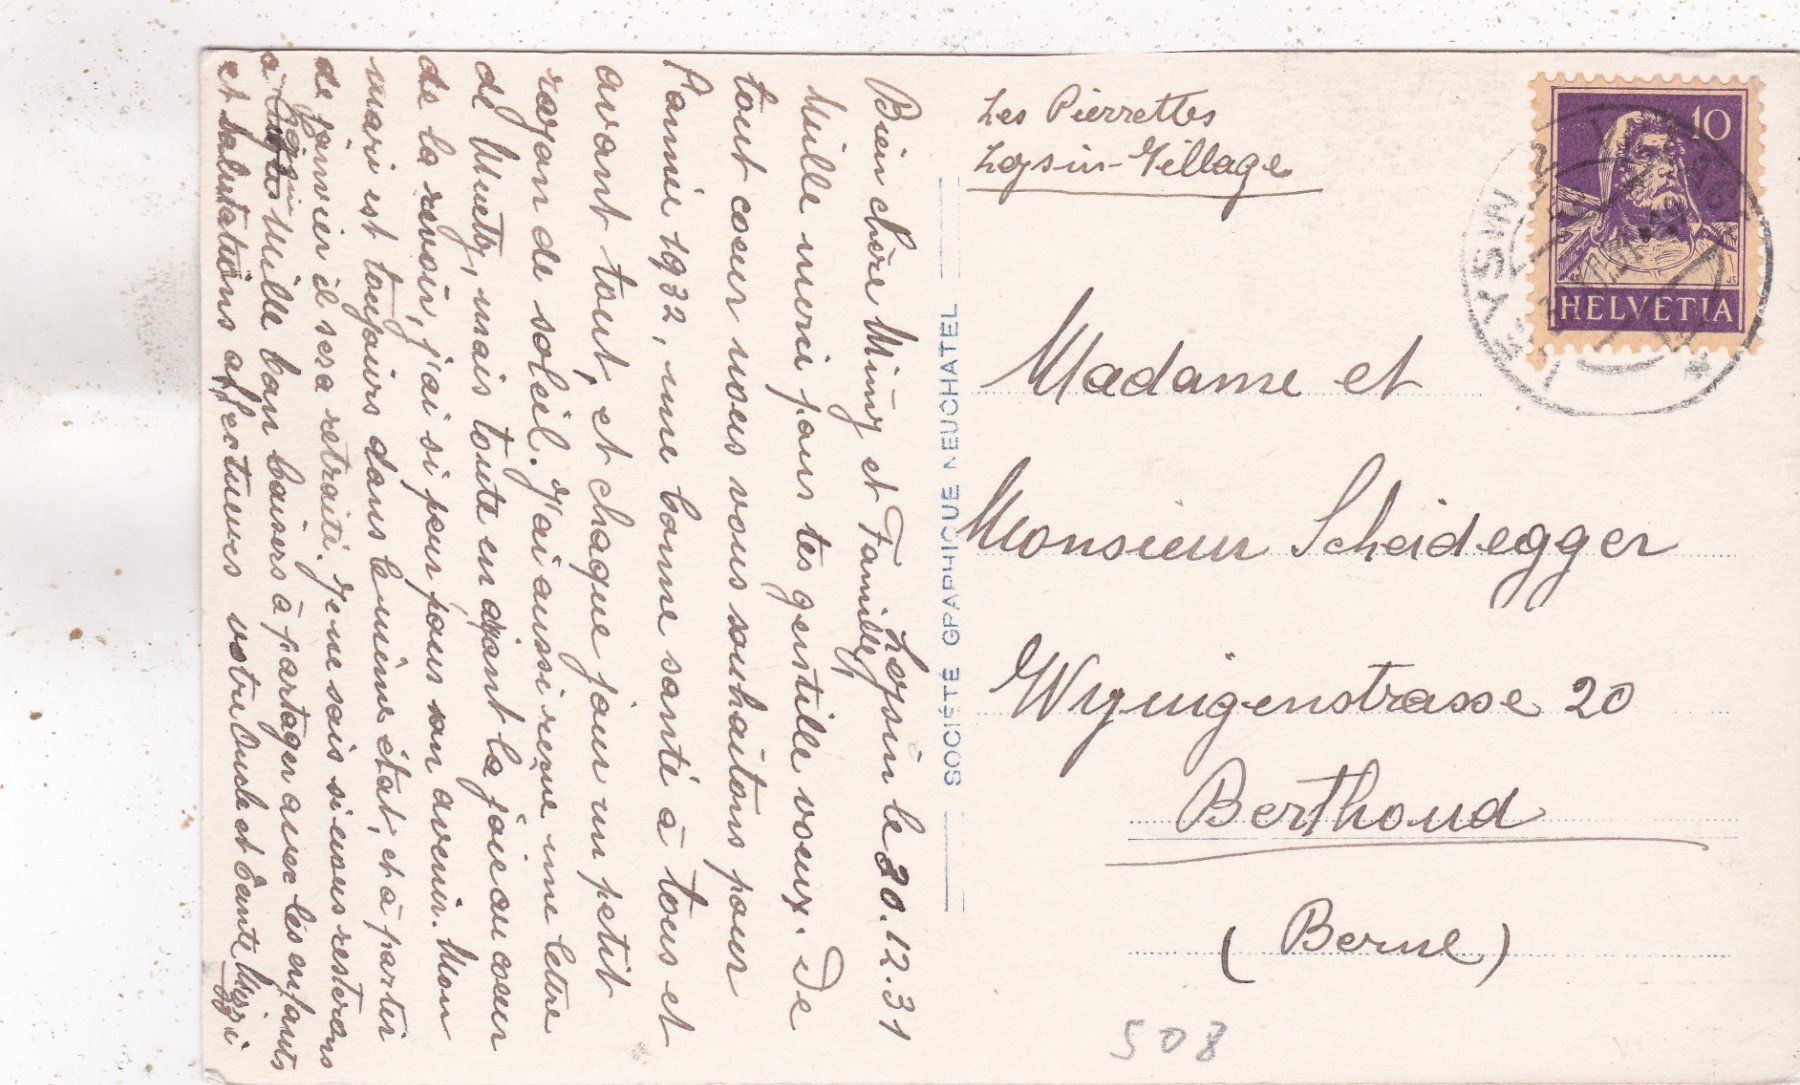 Les Pierrettes
Leysin-Village
10
HELVETIA
LEYSIN
Madame et
Monsieur Scheidegger
Wynigenstrasse 20
Berthoud
(Berne)
508
SOCIÉTÉ GRAPHIQUE NEUCHATEL
Leysin le 30.12.31
Bien chère Mimy et Famille,
Mille merci pour tes gentille voeux. De
tout coeur nous vous souhaitons pour
l'année 1932, une bonne santé à tous et
avant tout, et chaque jour un petit
rayon de soleil. J'ai aussi reçue une lettre
de Muetty, mais toute en ayant la joie au coeur
de la revoir, j'ai si peur pour son avenir. Mon
mari est toujours dans le même état, et à partir
de janvier il sera retraité. Je ne sais si nous resterons
à Leysin. Mille bon baisers à partager avec les enfants
et salutations affectueuses votre Oncle et Tante